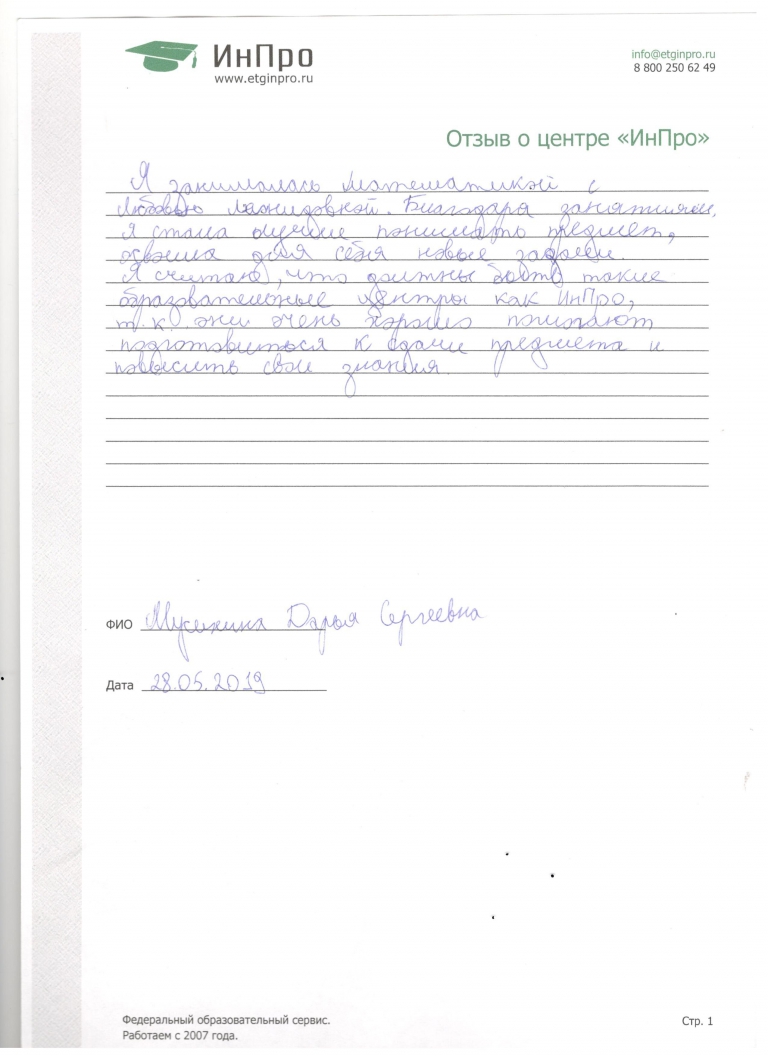 ИнПро
www.etginpro.ru
info@etginpro.ru
8 800 250 62 49
Отзыв о центре «ИнПро»
Я занималась математикой с
Любовью Леонидовной. Благодаря занятиям,
я стала лучше понимать предмет,
освоила для себя новые задачи.
Я считаю, что должны быть такие
образовательные центры как ИнПро,
т.к. они очень хорошо помогают
подготовиться к сдачи предмета и
повысить свои знания.
ФИО Мусихина Дарья Сергеевна
Дата 28.05.2019
Федеральный образовательный сервис.
Работаем с 2007 года.
Стр. 1